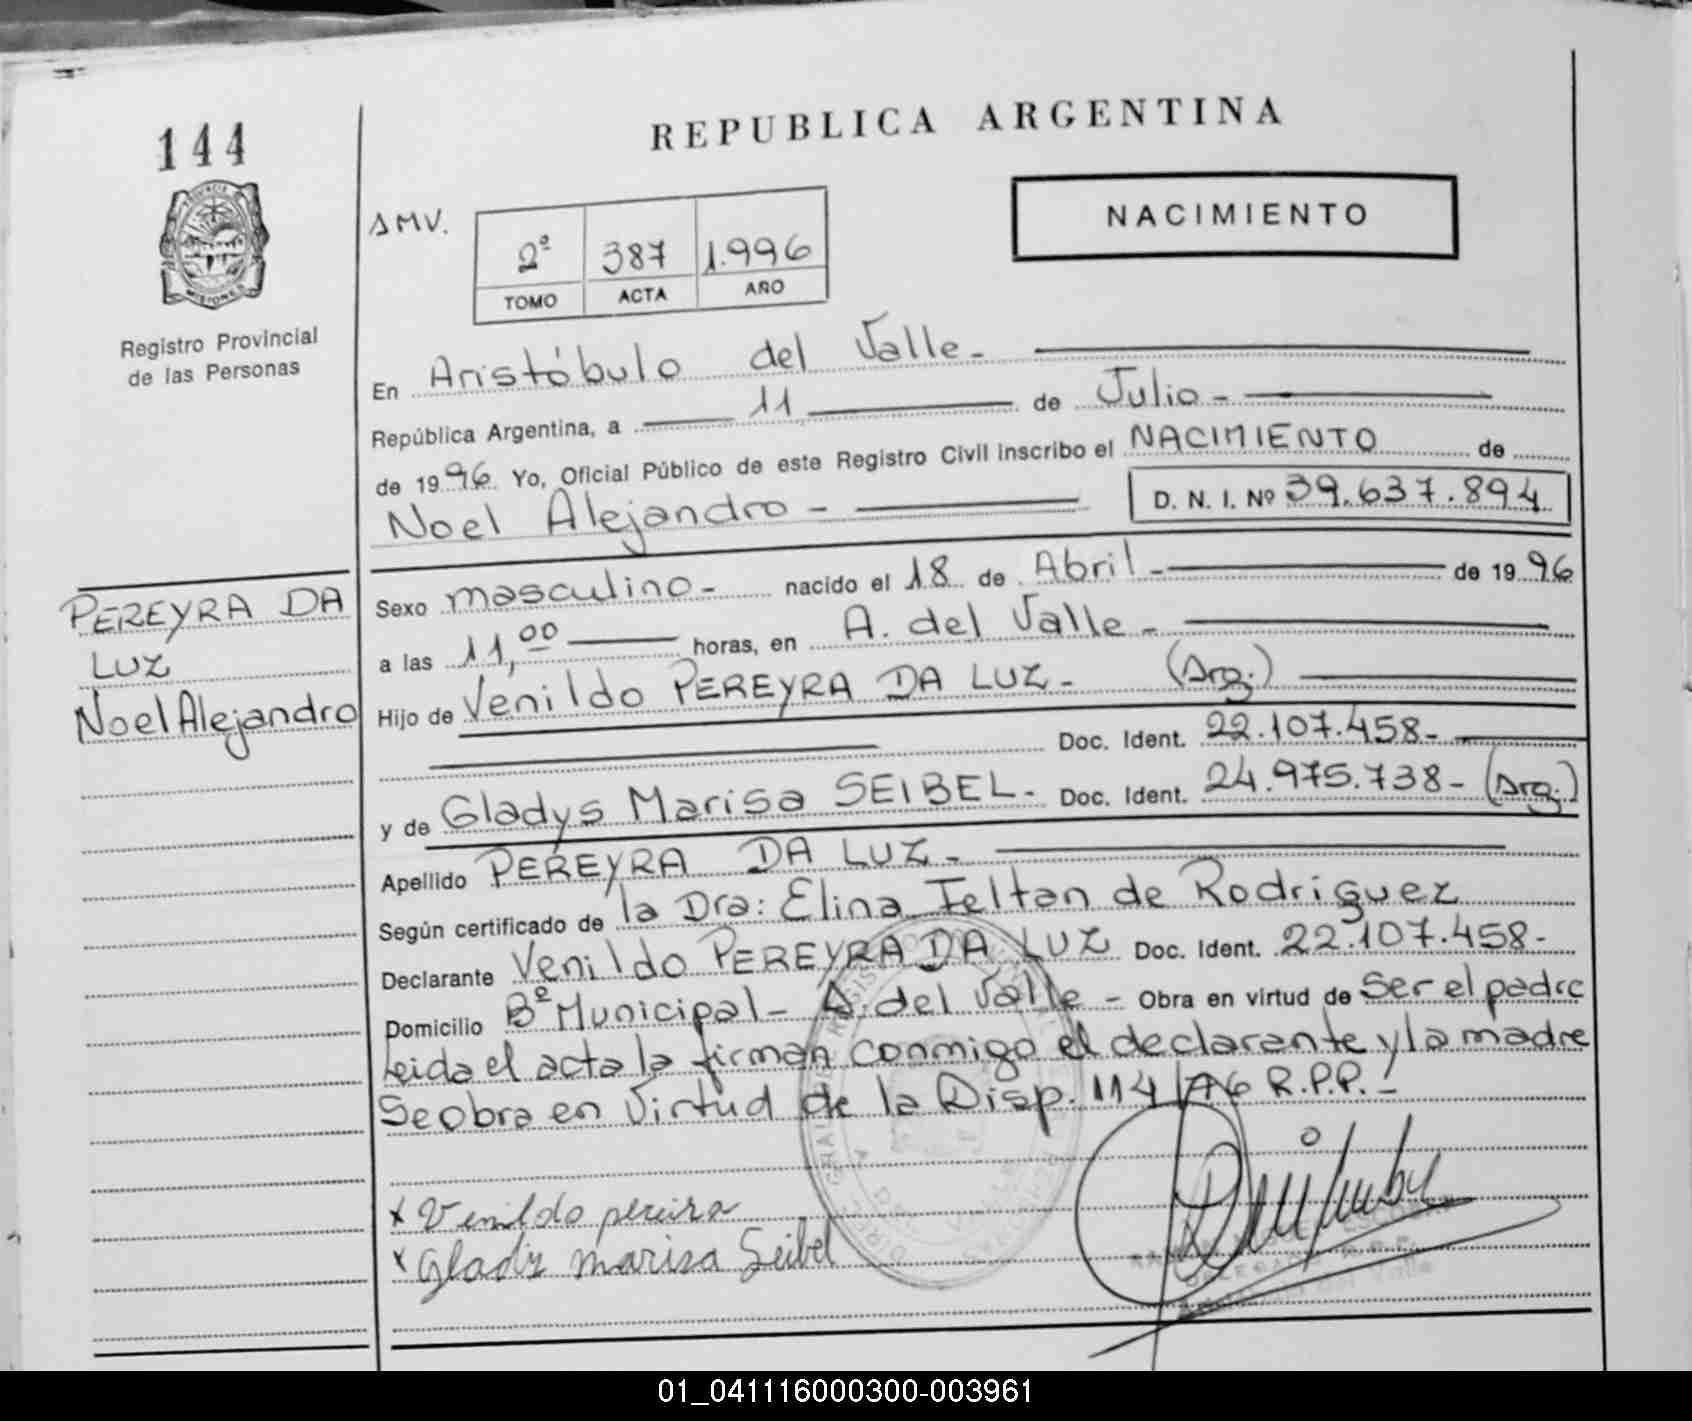 144
REPUBLICA ARGENTINA
NACIMIENTO
MISIONES
Registro Provincial
de las Personas
AMV.
2º 387 1.996
TOMO ACTA AÑO
En Aristóbulo del Valle-
República Argentina, a 11 de Julio-
de 1996 Yo, Oficial Público de este Registro Civil inscribo el NACIMIENTO de
Noel Alejandro- D. N. I. Nº 39.637.894
PEREYRA DA
LUZ
Noel Alejandro
Sexo masculino- nacido el 18 de Abril- de 1996
a las 11,00 horas, en A. del Valle-
Hijo de Venildo PEREYRA DA LUZ- (Arg.)
Doc. Ident. 22.107.458-
y de Gladys Marisa SEIBEL- Doc. Ident. 24.975.738- (Arg.)
Apellido PEREYRA DA LUZ-
Según certificado de la Dra: Elina Feltan de Rodriguez
Declarante Venildo PEREYRA DA LUZ Doc. Ident. 22.107.458-
Domicilio Bº Municipal- A. del Valle- Obra en virtud de Ser el padre
Leida el acta la firman conmigo el declarante y la madre
Se obra en Virtud de la Disp. 114/76 R.P.P.!-
x Venildo pereira
x Gladiz marisa Seibel
01_041116000300-003961